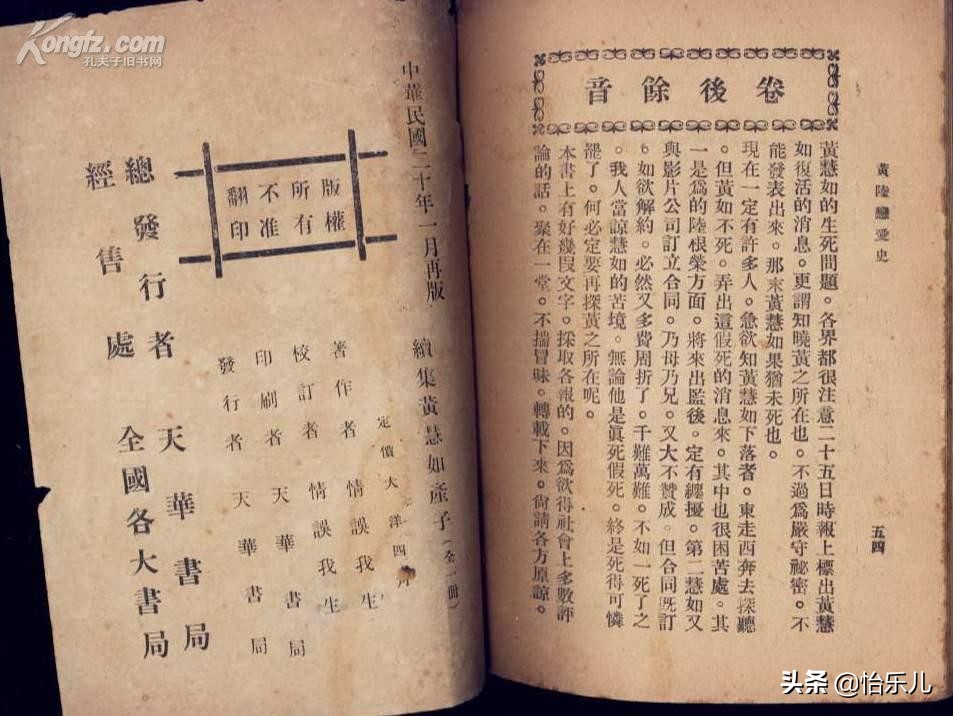 黃陸戀愛史
五四
卷後餘音
黃慧如的生死問題。各界都很注意二十五日時報上標出黃慧
如復活的消息。更謂知曉黃之所在也。不過爲嚴守祕密。不
能發表出來。那末黃慧如果猶未死也。
現在一定有許多人。急欲知黃慧如下落者。東走西奔去探聽
。但黃如不死。弄出這假死的消息來。其中也很困苦處。其
一是爲的陸根榮方面。將來出監後。定有纏擾。第二慧如又
與影片公司訂立合同。乃母乃兄。又大不贊成。但合同既訂
。如欲解約。必然又多費周折了。千難萬難。不如一死了之
。我人當諒慧如的苦境。無論他是眞死假死。終是死得可憐
罷了。何必定要再探黃之所在呢。
本書上有好幾段文字。採取各報的。因爲欲得社會上多數評
論的話。聚在一堂。不揣冒昧。轉載下來。尙請各方原諒。
續集黃慧如產子（全一冊）
中華民國二十年一月再版
版權
所有
不准
翻印
定價大洋四
著作者 情誤我生
校訂者 情誤我生
印刷者 天華書局
發行者 天華書局
總發行者 天華書局
經售處 全國各大書局
Kongfz.com
孔夫子旧书网
头条 @怡乐儿